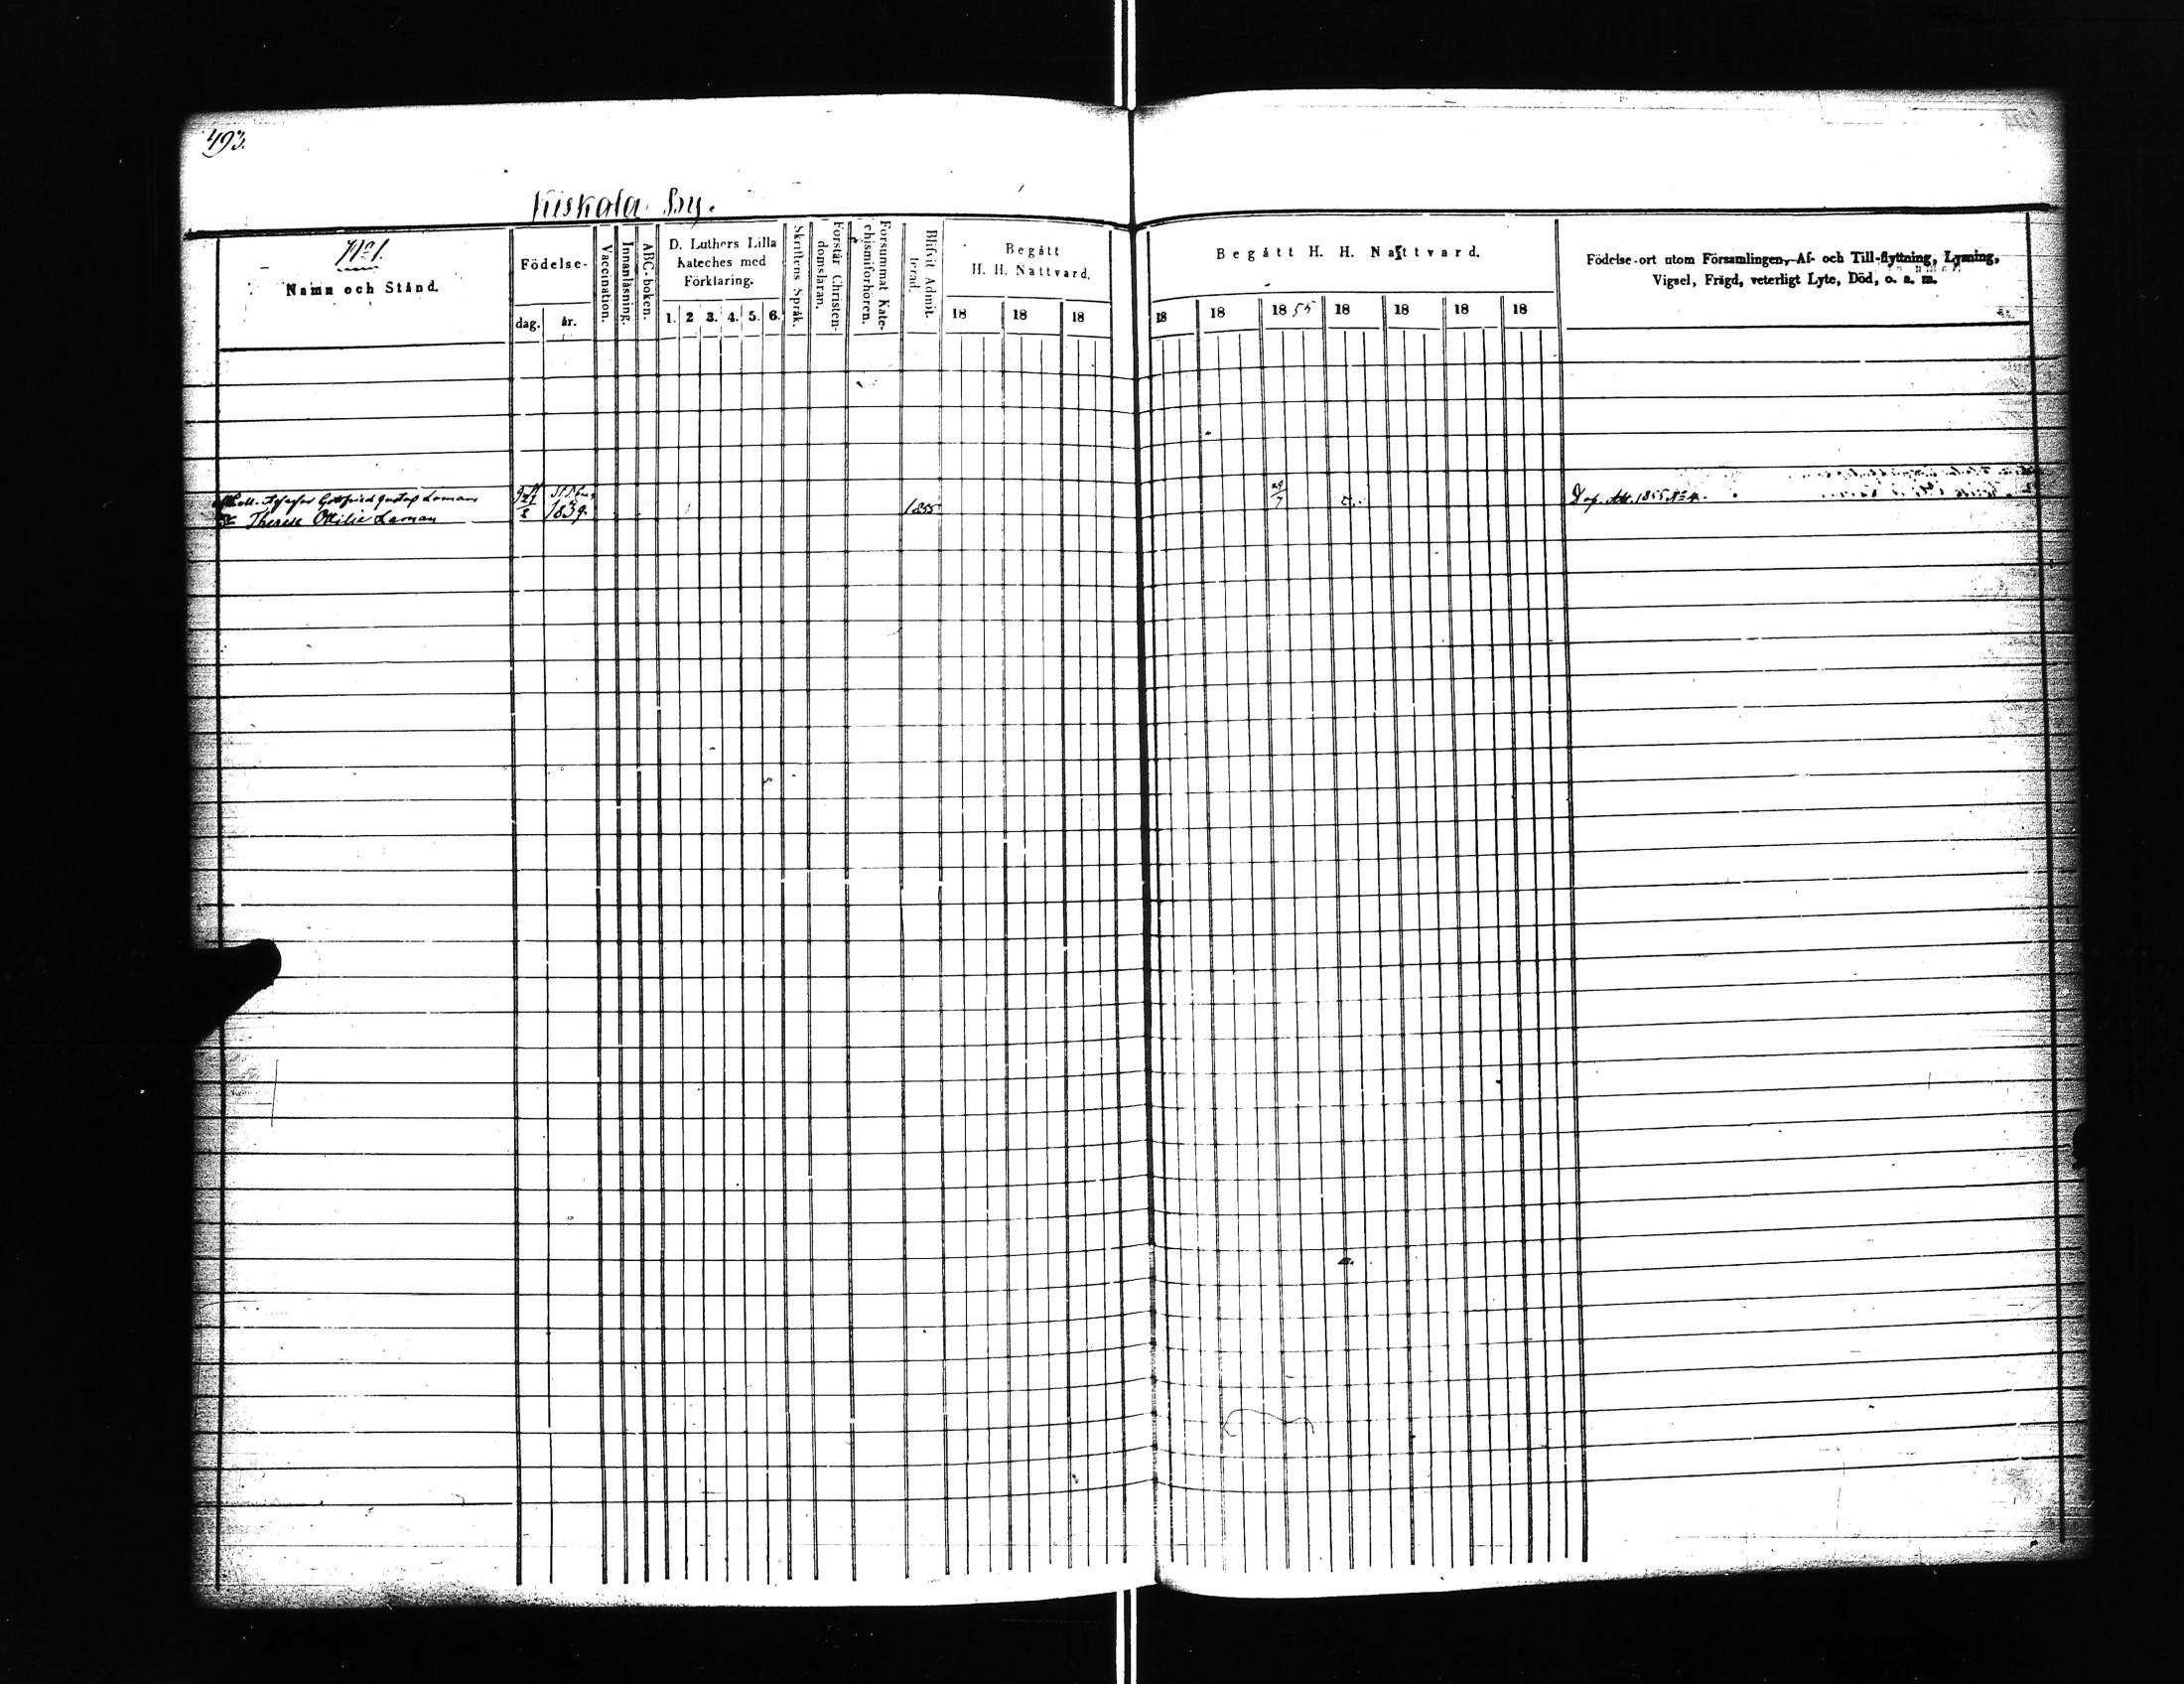 493.
Kiskala By.
No 1.
Namn och Stånd.
Födelse-
dag.
år.
Vaccination.
Innanläsning.
ABC-boken.
D. Luthers Lilla
Kateches med
Förklaring.
1. 2 3. 4. 5. 6.
Skriftens Språk.
Förstår Christen-
domsläran.
Försummat Kate-
chismiförhören.
Blifvit Admit-
terad.
Begått
H. H. Nattvard.
18 18 18
Begått H. H. Nattvard.
18 18 1855 18 18 18 18
Födelse-ort utom Församlingen, Af- och Till-flyttning, Lysning,
Vigsel, Frägd, veterligt Lyte, Död, o. a. m.
Gottfried Gustaf Loman
Therese Ottilie Loman
27/8 1839. 1855 29/7 1855